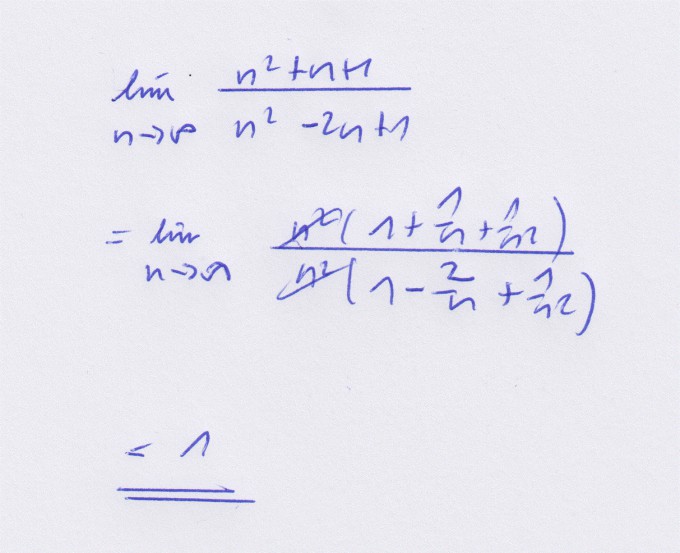 lim n→∞ (n² + n + 1) / (n² - 2n + 1)
= lim n→∞ n²(1 + 1/n + 1/n²) / n²(1 - 2/n + 1/n²)
= 1